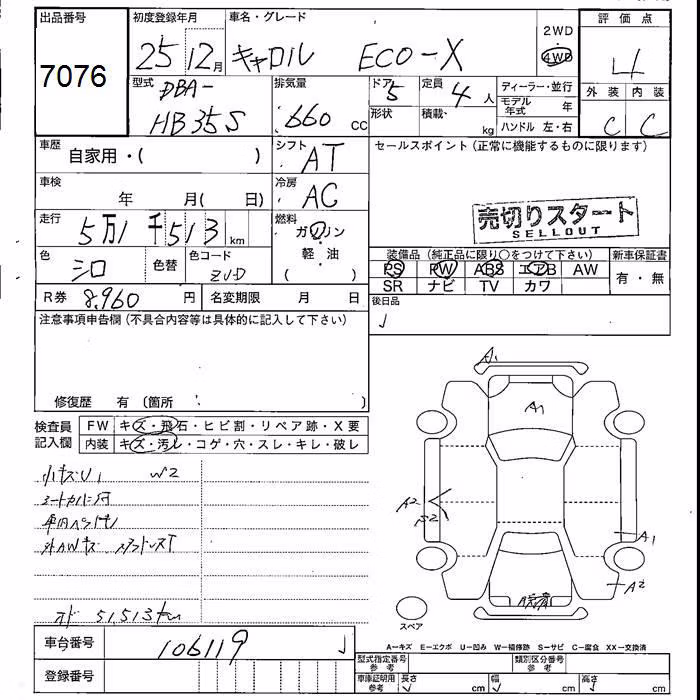 出品番号
7076
初度登録年月
25 12月
車名・グレード
キャロル ECO-X
2WD
4WD
評価点
4
外装 内装
C C
型式
DBA-
HB35S
排気量
660 CC
ドア
5
形状
定員
4 人
積載
kg
ディーラー・並行
モデル年式 年
ハンドル 左・右
車歴
自家用・( )
シフト
AT
セールスポイント(正常に機能するものに限ります)
車検
年 月( 日)
冷房
AC
売切りスタート
SELLOUT
走行
5万1千513 km
燃料
ガソリン
・
軽・油
( )
色
シロ
色替
色コード
ZVD
装備品(純正品に限り○をつけて下さい)
PS PW ABS エアB AW
SR ナビ TV カワ
新車保証書
有・無
R券 8,960 円
名変期限 月 日
後日品
注意事項申告欄(不具合内容等は具体的に記入して下さい)
修復歴 有(箇所 )
検査員記入欄
FW キズ・飛石・ヒビ割・リペア跡・X要
内装 キズ・汚レ・コゲ・穴・スレ・キレ・破レ
小キズU1 W2
外AWキズ
オド 51,513km
A1
A1
A2
A1
A2
スペア
車台番号
106119
登録番号
A-キズ E-エクボ U-凹み W-補修跡 S-サビ C-腐食 XX-交換済
型式指定番号 参考
類別区分番号 参考
車庫証明用 参考
長さ cm
幅 cm
高さ cm